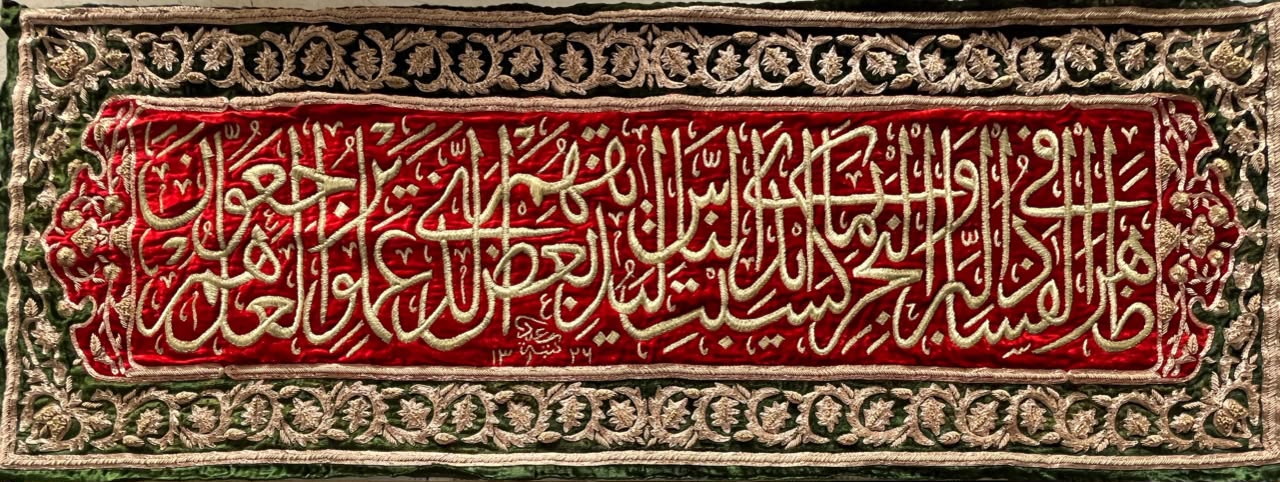 ظهر الفساد في البر والبحر بما كسبت ايدي الناس ليذيقهم بعض الذي عملوا لعلهم يرجعون
١٣٢٦